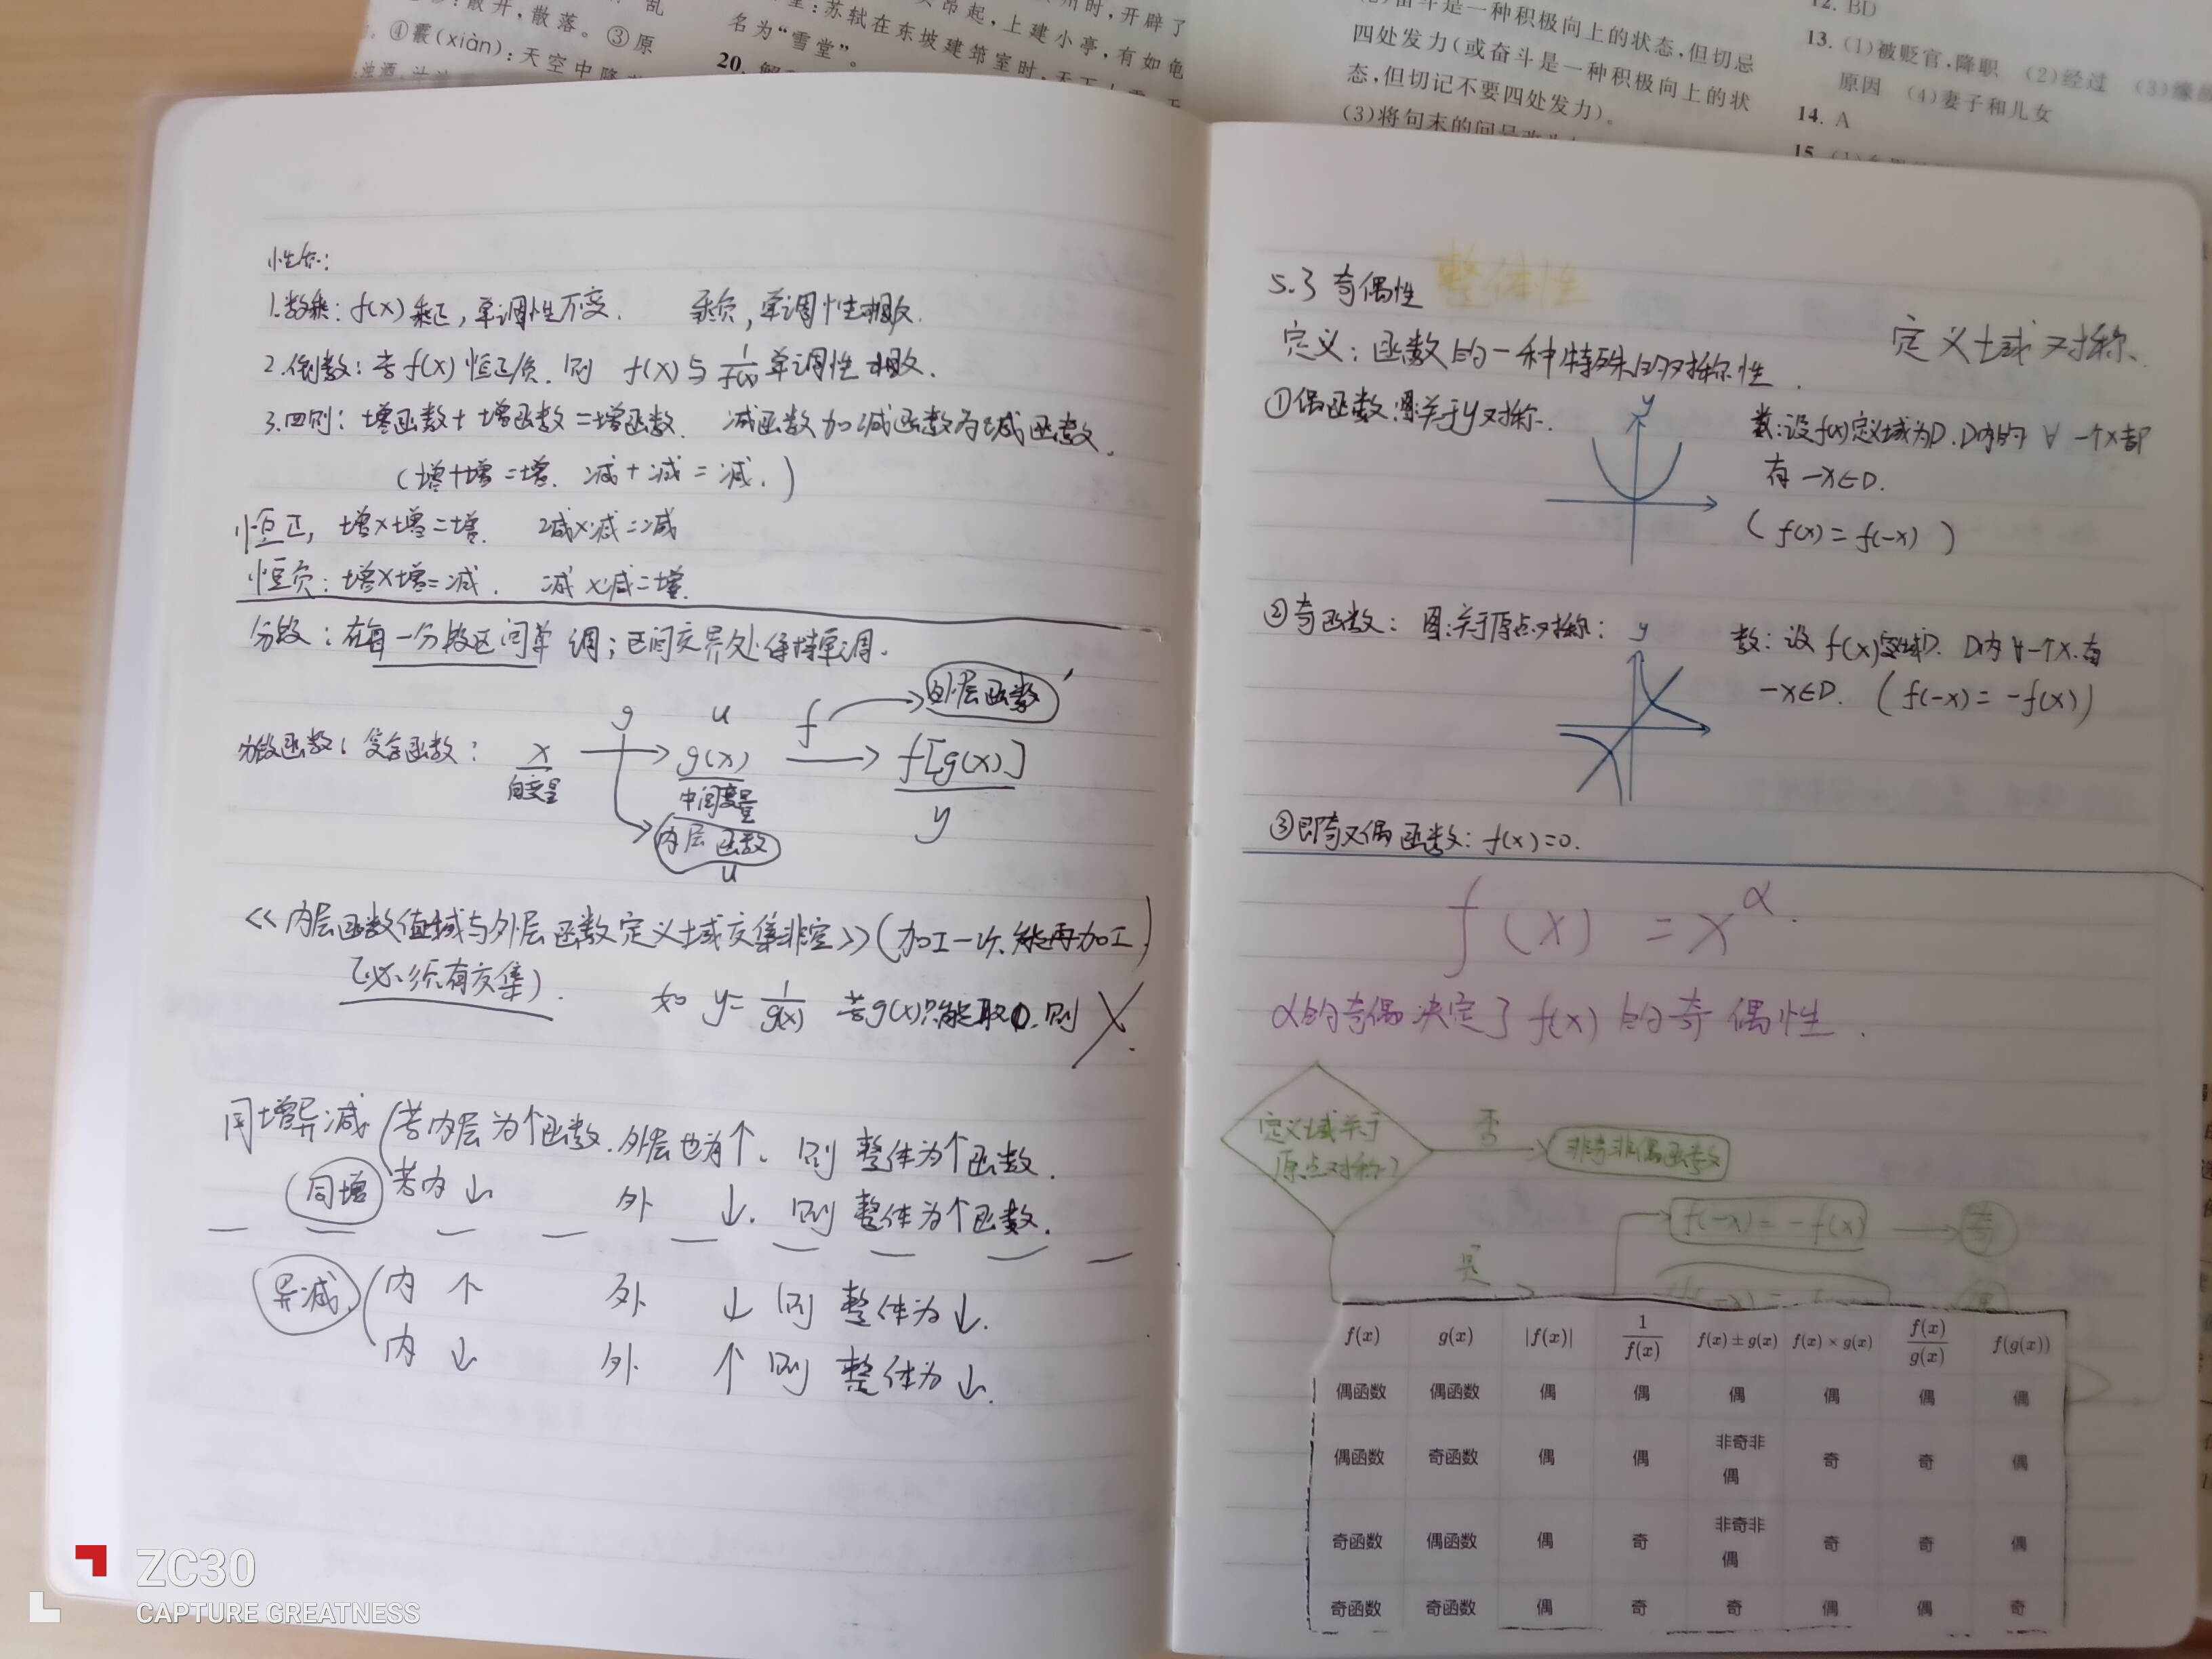 散开,散落。③原
④霰(xiàn):天空中降
名为“雪堂”。
苏轼在东坡建筑室时,天
昂起,上建小亭,有如龟
时,开辟了
奋斗是一种积极向上的状态,但切忌
四处发力(或奋斗是一种积极向上的状
态,但切记不要四处发力)。
(3)将句末的问号改为
12. BD
13. (1)被贬官,降职 (2)经过 (3)缘故
原因 (4)妻子和儿女
14. A
性质:
1.数乘:f(x)乘正,单调性不变. 乘负,单调性相反.
2.倒数:若f(x)恒正/负.则 f(x)与1/f(x)单调性相反.
3.四则:增函数+增函数=增函数. 减函数加减函数为减函数。
(增+增=增. 减+减=减.)
恒正, 增×增=增. 减×减=减
恒负:增×增=减. 减×减=增.
分段:在每一分段区间单调;区间交界处保持单调.
外层函数
g u f
复合函数: x g(x) f[g(x)]
自变量 中间变量 y
内层函数
u
<<内层函数值域与外层函数定义域交集非空>>(加工一次.能再加工)
(必须有交集). 如 y=1/g(x) 若g(x)只能取0.则 X.
同增异减(若内层为个函数.外层也为↑. 则 整体为个函数.
同增 若内↓ 外 ↓. 则 整体为个函数.
异减.(内 个 外 ↓ 则 整体为↓.
内 ↓ 外 ↑ 则 整体为↓.
5.3 奇偶性 整体性
定义:函数的一种特殊的对称性. 定义域对称.
①偶函数:图:关于y对称. y 数:设f(x)定义域为D.D内的∀一个x都
有 -x∈D.
(f(x)=f(-x))
②奇函数: 图:关于原点对称: y 数:设f(x)定义域D. D内∀一个x.有
-x∈D. (f(-x)=-f(x))
③即奇又偶函数:f(x)=0.
f(x)=x^α.
α的奇偶决定了f(x)的奇偶性.
定义域关于 否 非奇非偶函数
原点对称?
f(-x)=-f(x) 奇
是
f(x) g(x) |f(x)| 1/f(x) f(x)±g(x) f(x)×g(x) f(x)/g(x) f(g(x))
偶函数 偶函数 偶 偶 偶 偶 偶 偶
偶函数 奇函数 偶 偶 非奇非偶 奇 奇 偶
奇函数 偶函数 偶 奇 非奇非偶 奇 奇 偶
奇函数 奇函数 偶 奇 奇 偶 偶 奇
ZC30
CAPTURE GREATNESS